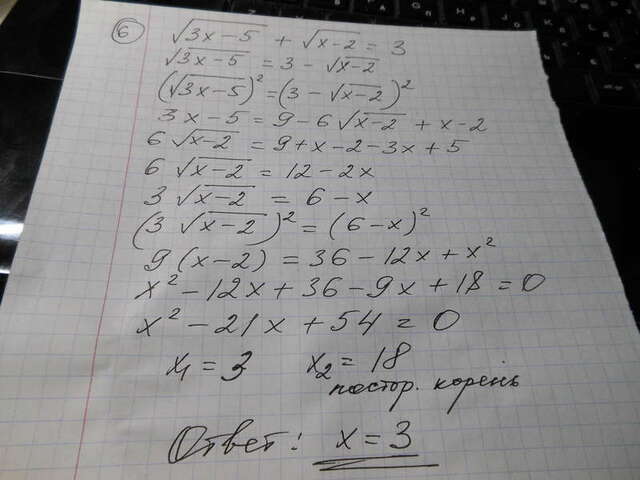 6 √(3x-5) + √(x-2) = 3
√(3x-5) = 3 - √(x-2)
(√(3x-5))² = (3 - √(x-2))²
3x-5 = 9-6√(x-2) + x-2
6√(x-2) = 9+x-2-3x+5
6√(x-2) = 12-2x
3√(x-2) = 6-x
(3√(x-2))² = (6-x)²
9(x-2) = 36-12x+x²
x²-12x+36-9x+18=0
x²-21x+54=0
x₁=3 x₂=18
постор. корень
Ответ: x=3